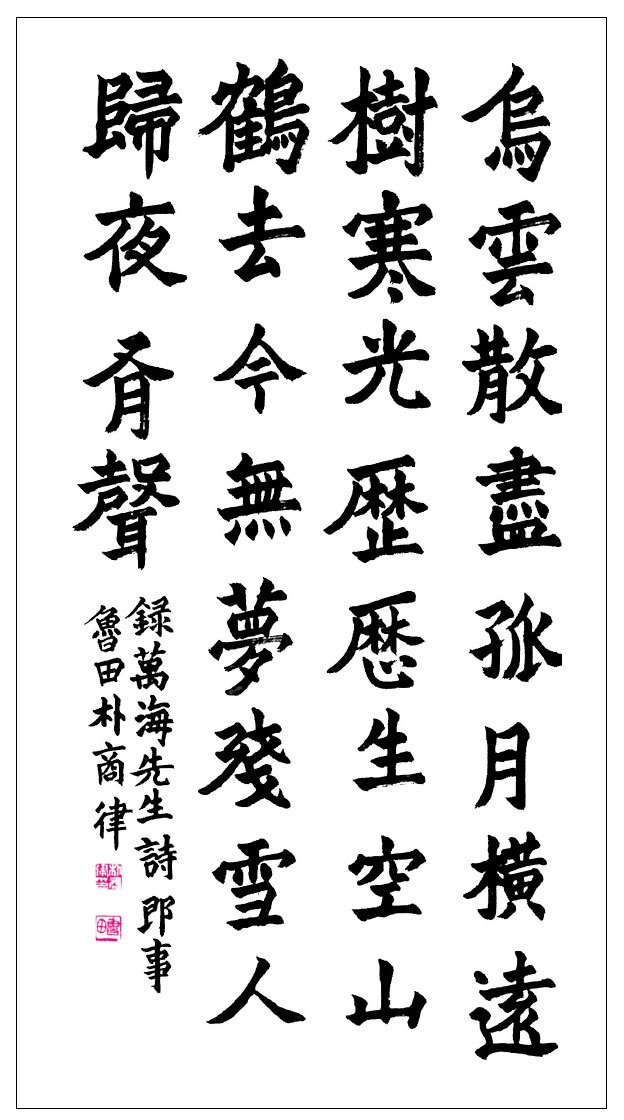 烏雲散盡孤月橫遠
樹寒光歷歷生空山
鶴去今無夢殘雪人
歸夜有聲
錄萬海先生詩即事
魯田朴商律